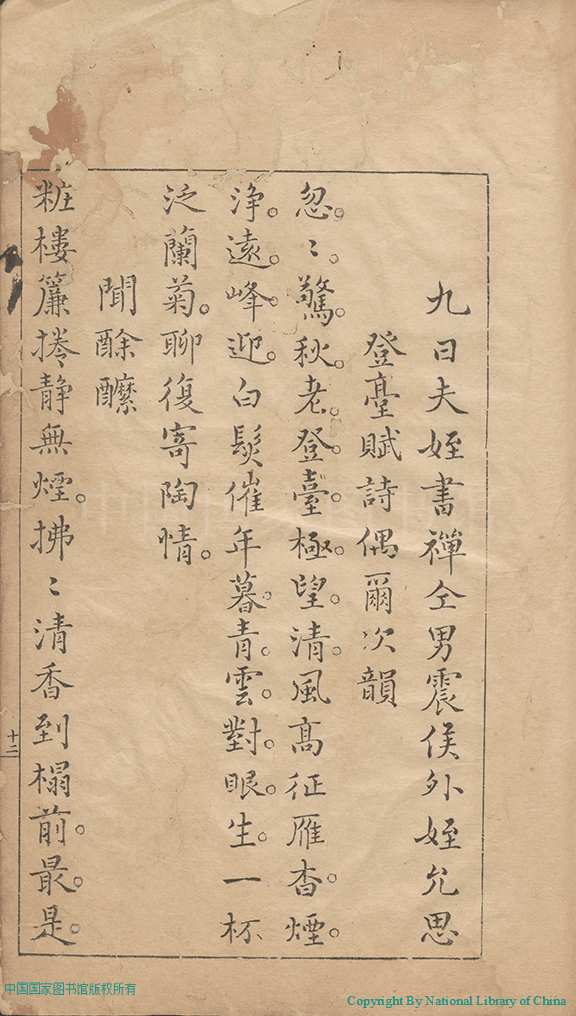 九日夫姪書禪仝男震侯外姪允思
登臺賦詩偶爾次韻
忽〻驚秋老登臺極望清風高征雁杳煙
浄遠峰迎白髮催年暮青雲對眼生一杯
泛蘭菊聊復寄陶情
聞酴醾
粧樓簾捲靜無煙拂〻清香到榻前最是
十二
中国国家图书馆版权所有
Copyright By National Library of China